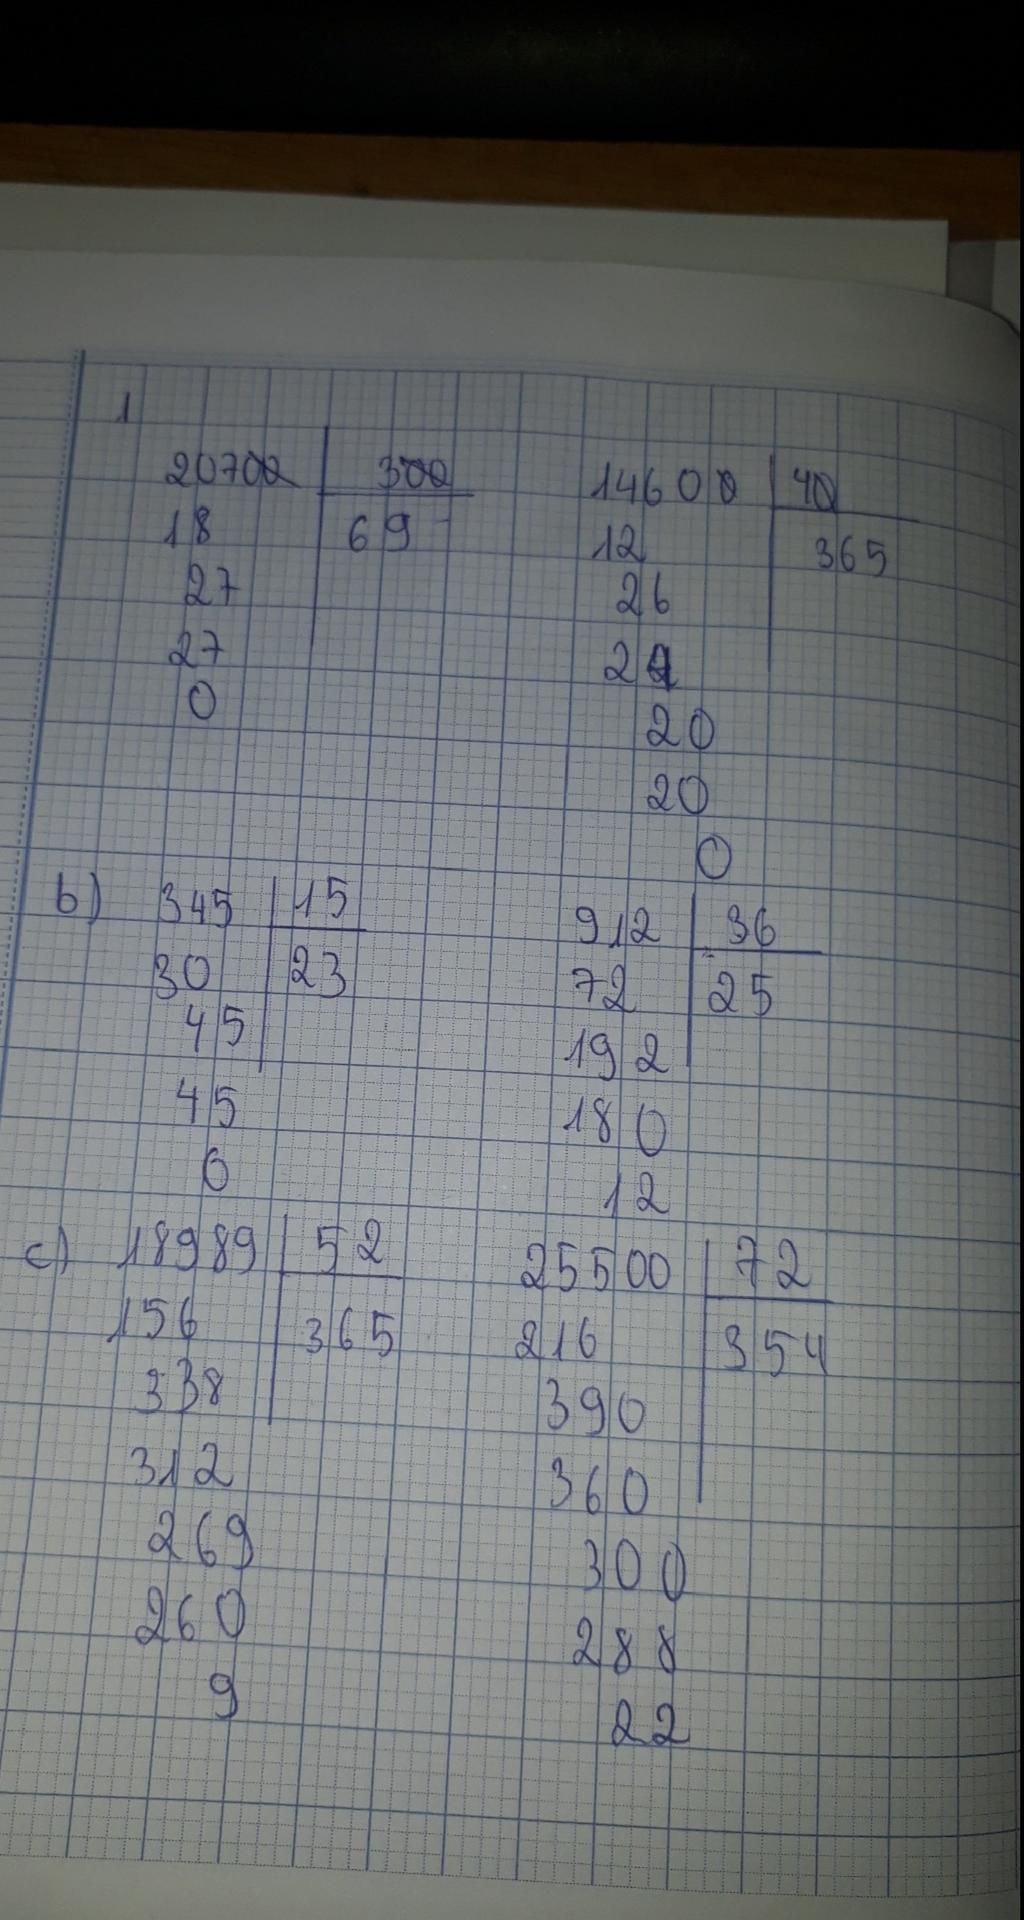 1
20700 300 14600 40
18 69 12 365
27 26
27 24
0 20
20
0
b) 345 15 912 36
30 23 72 25
45 192
45 180
0 12
c) 18989 52 25500 72
156 365 216 354
338 390
312 360
269 300
260 288
9 22